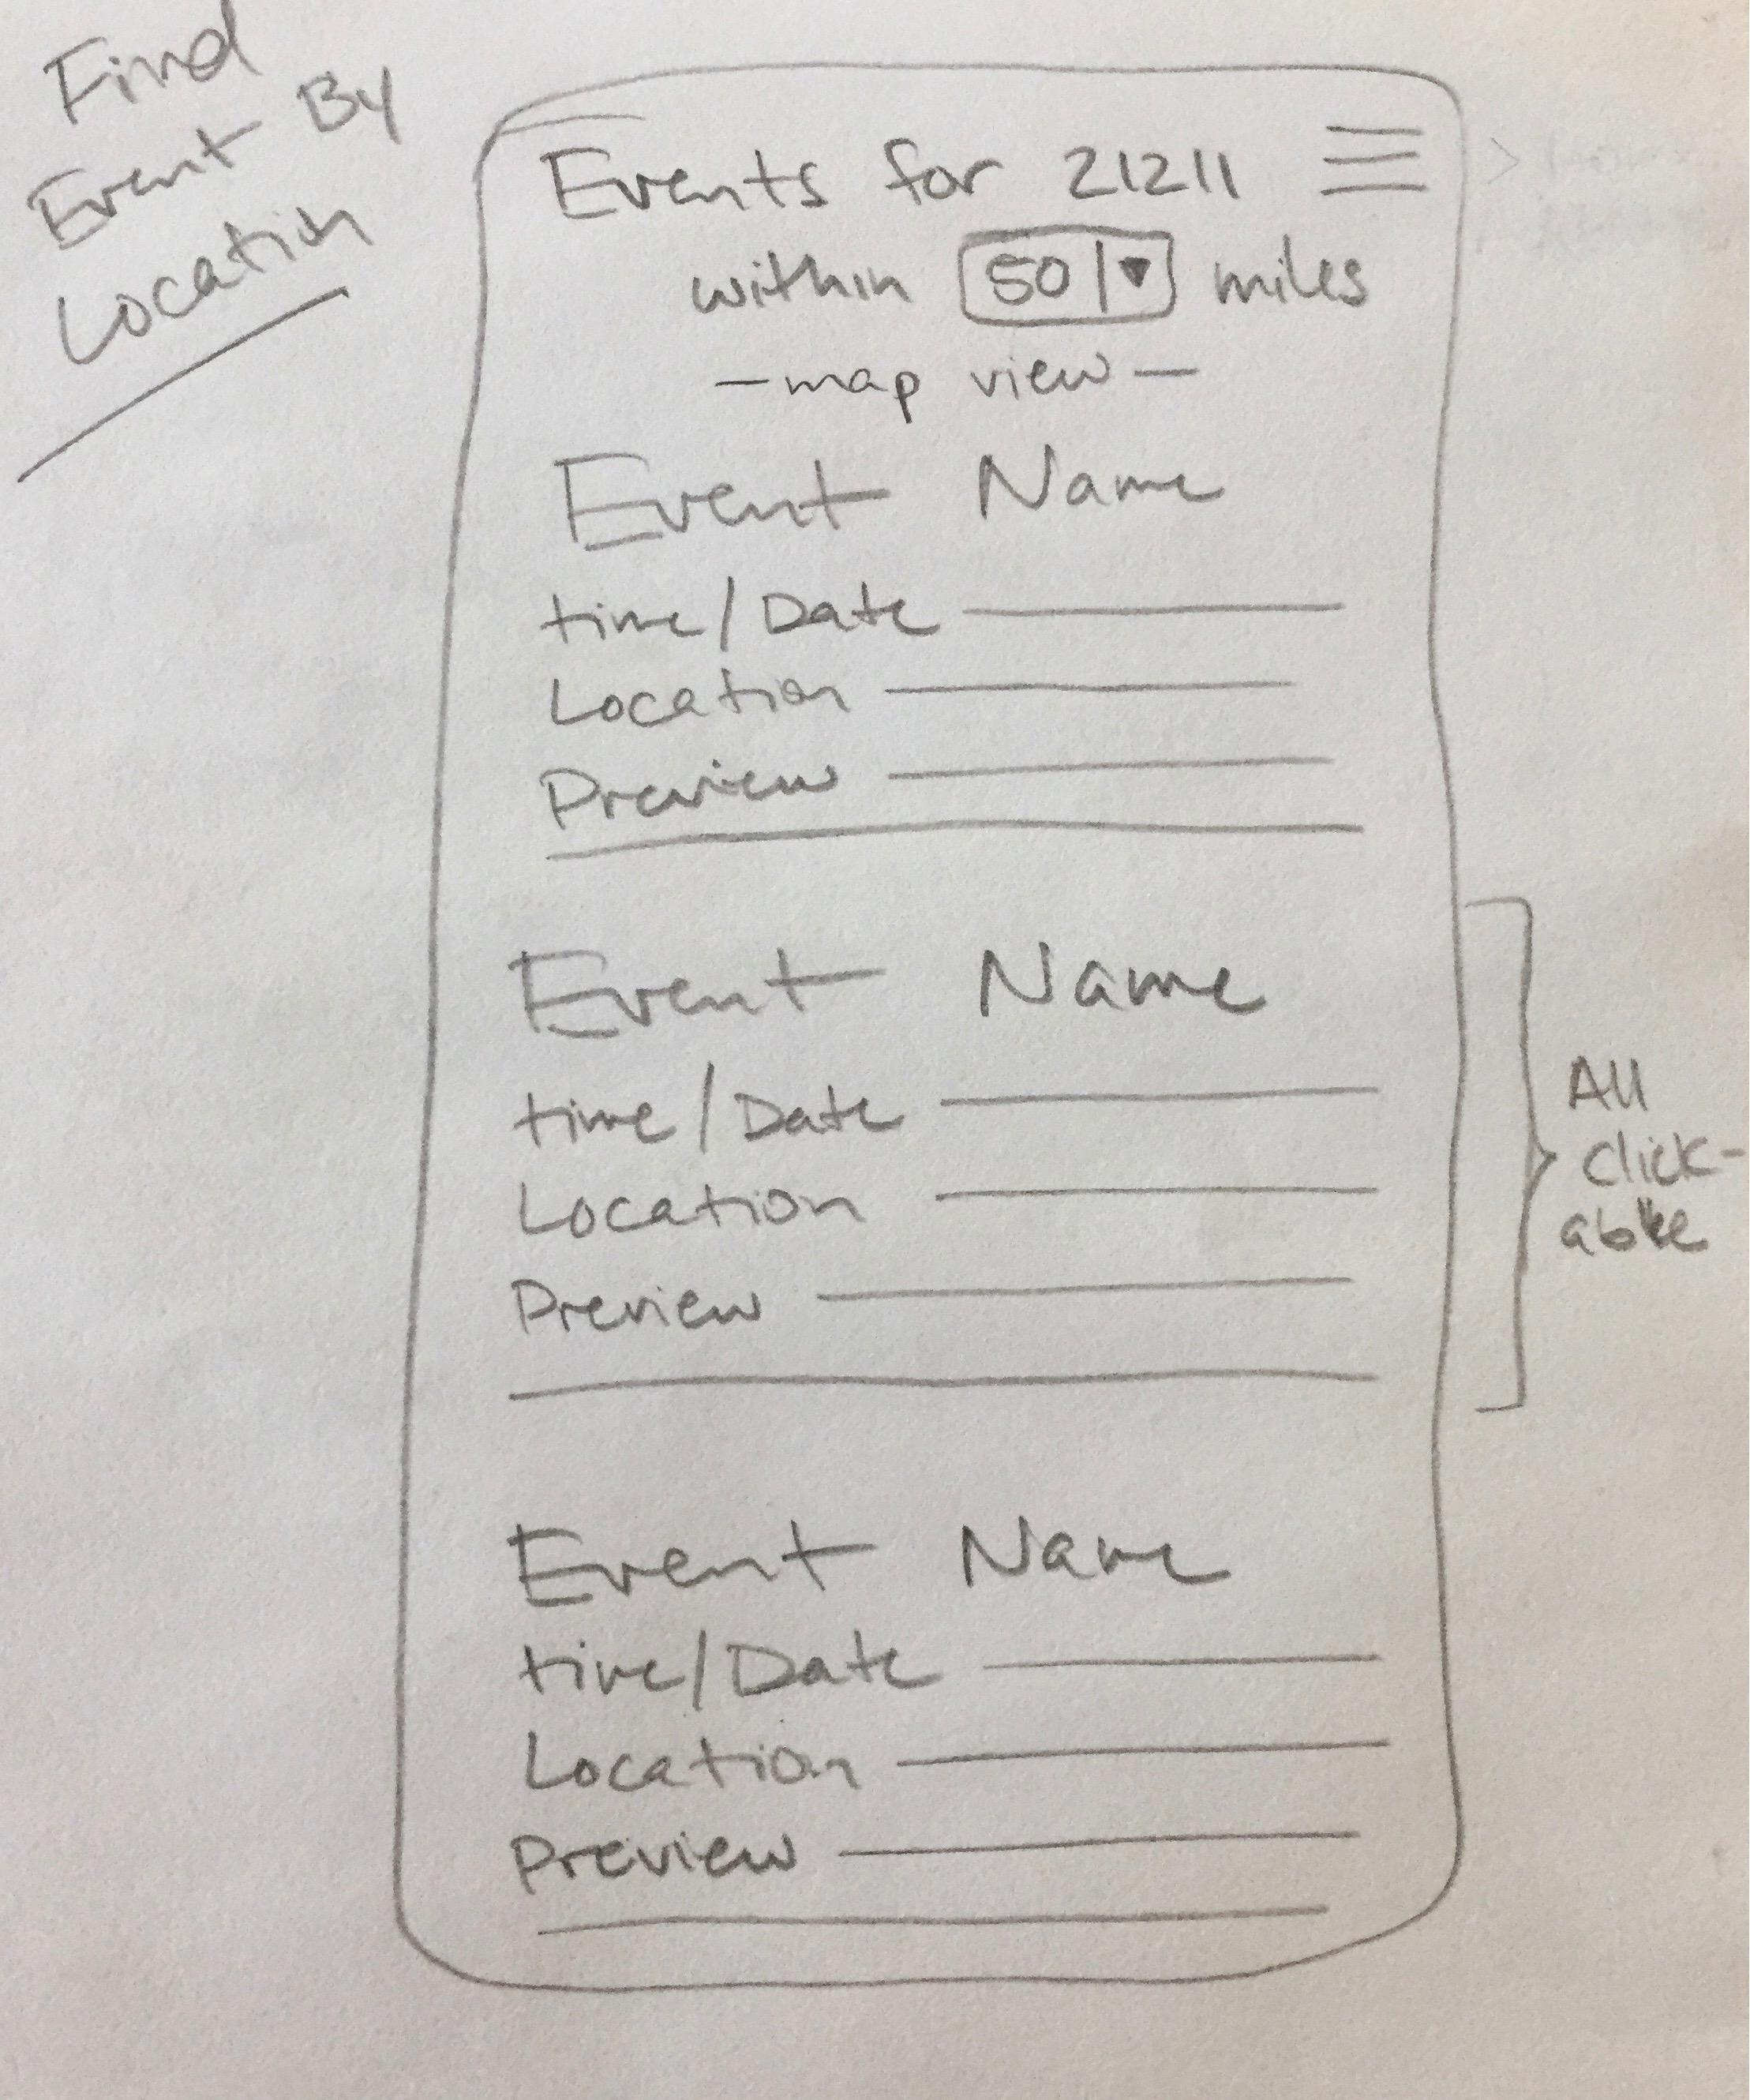 Find
Event By
Location
Events for 21211
within 50 miles
-map view-
Event Name
time/Date
Location
Preview
Event Name
time/Date
Location
Preview
All
click-
able
Event Name
time/Date
Location
Preview